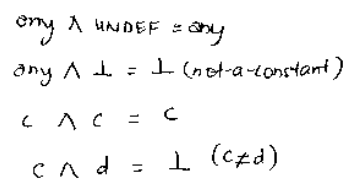 any ∧ UNDEF = any
any ∧ ⊥ = ⊥ (not-a-constant)
c ∧ c = c
c ∧ d = ⊥ (c≠d)